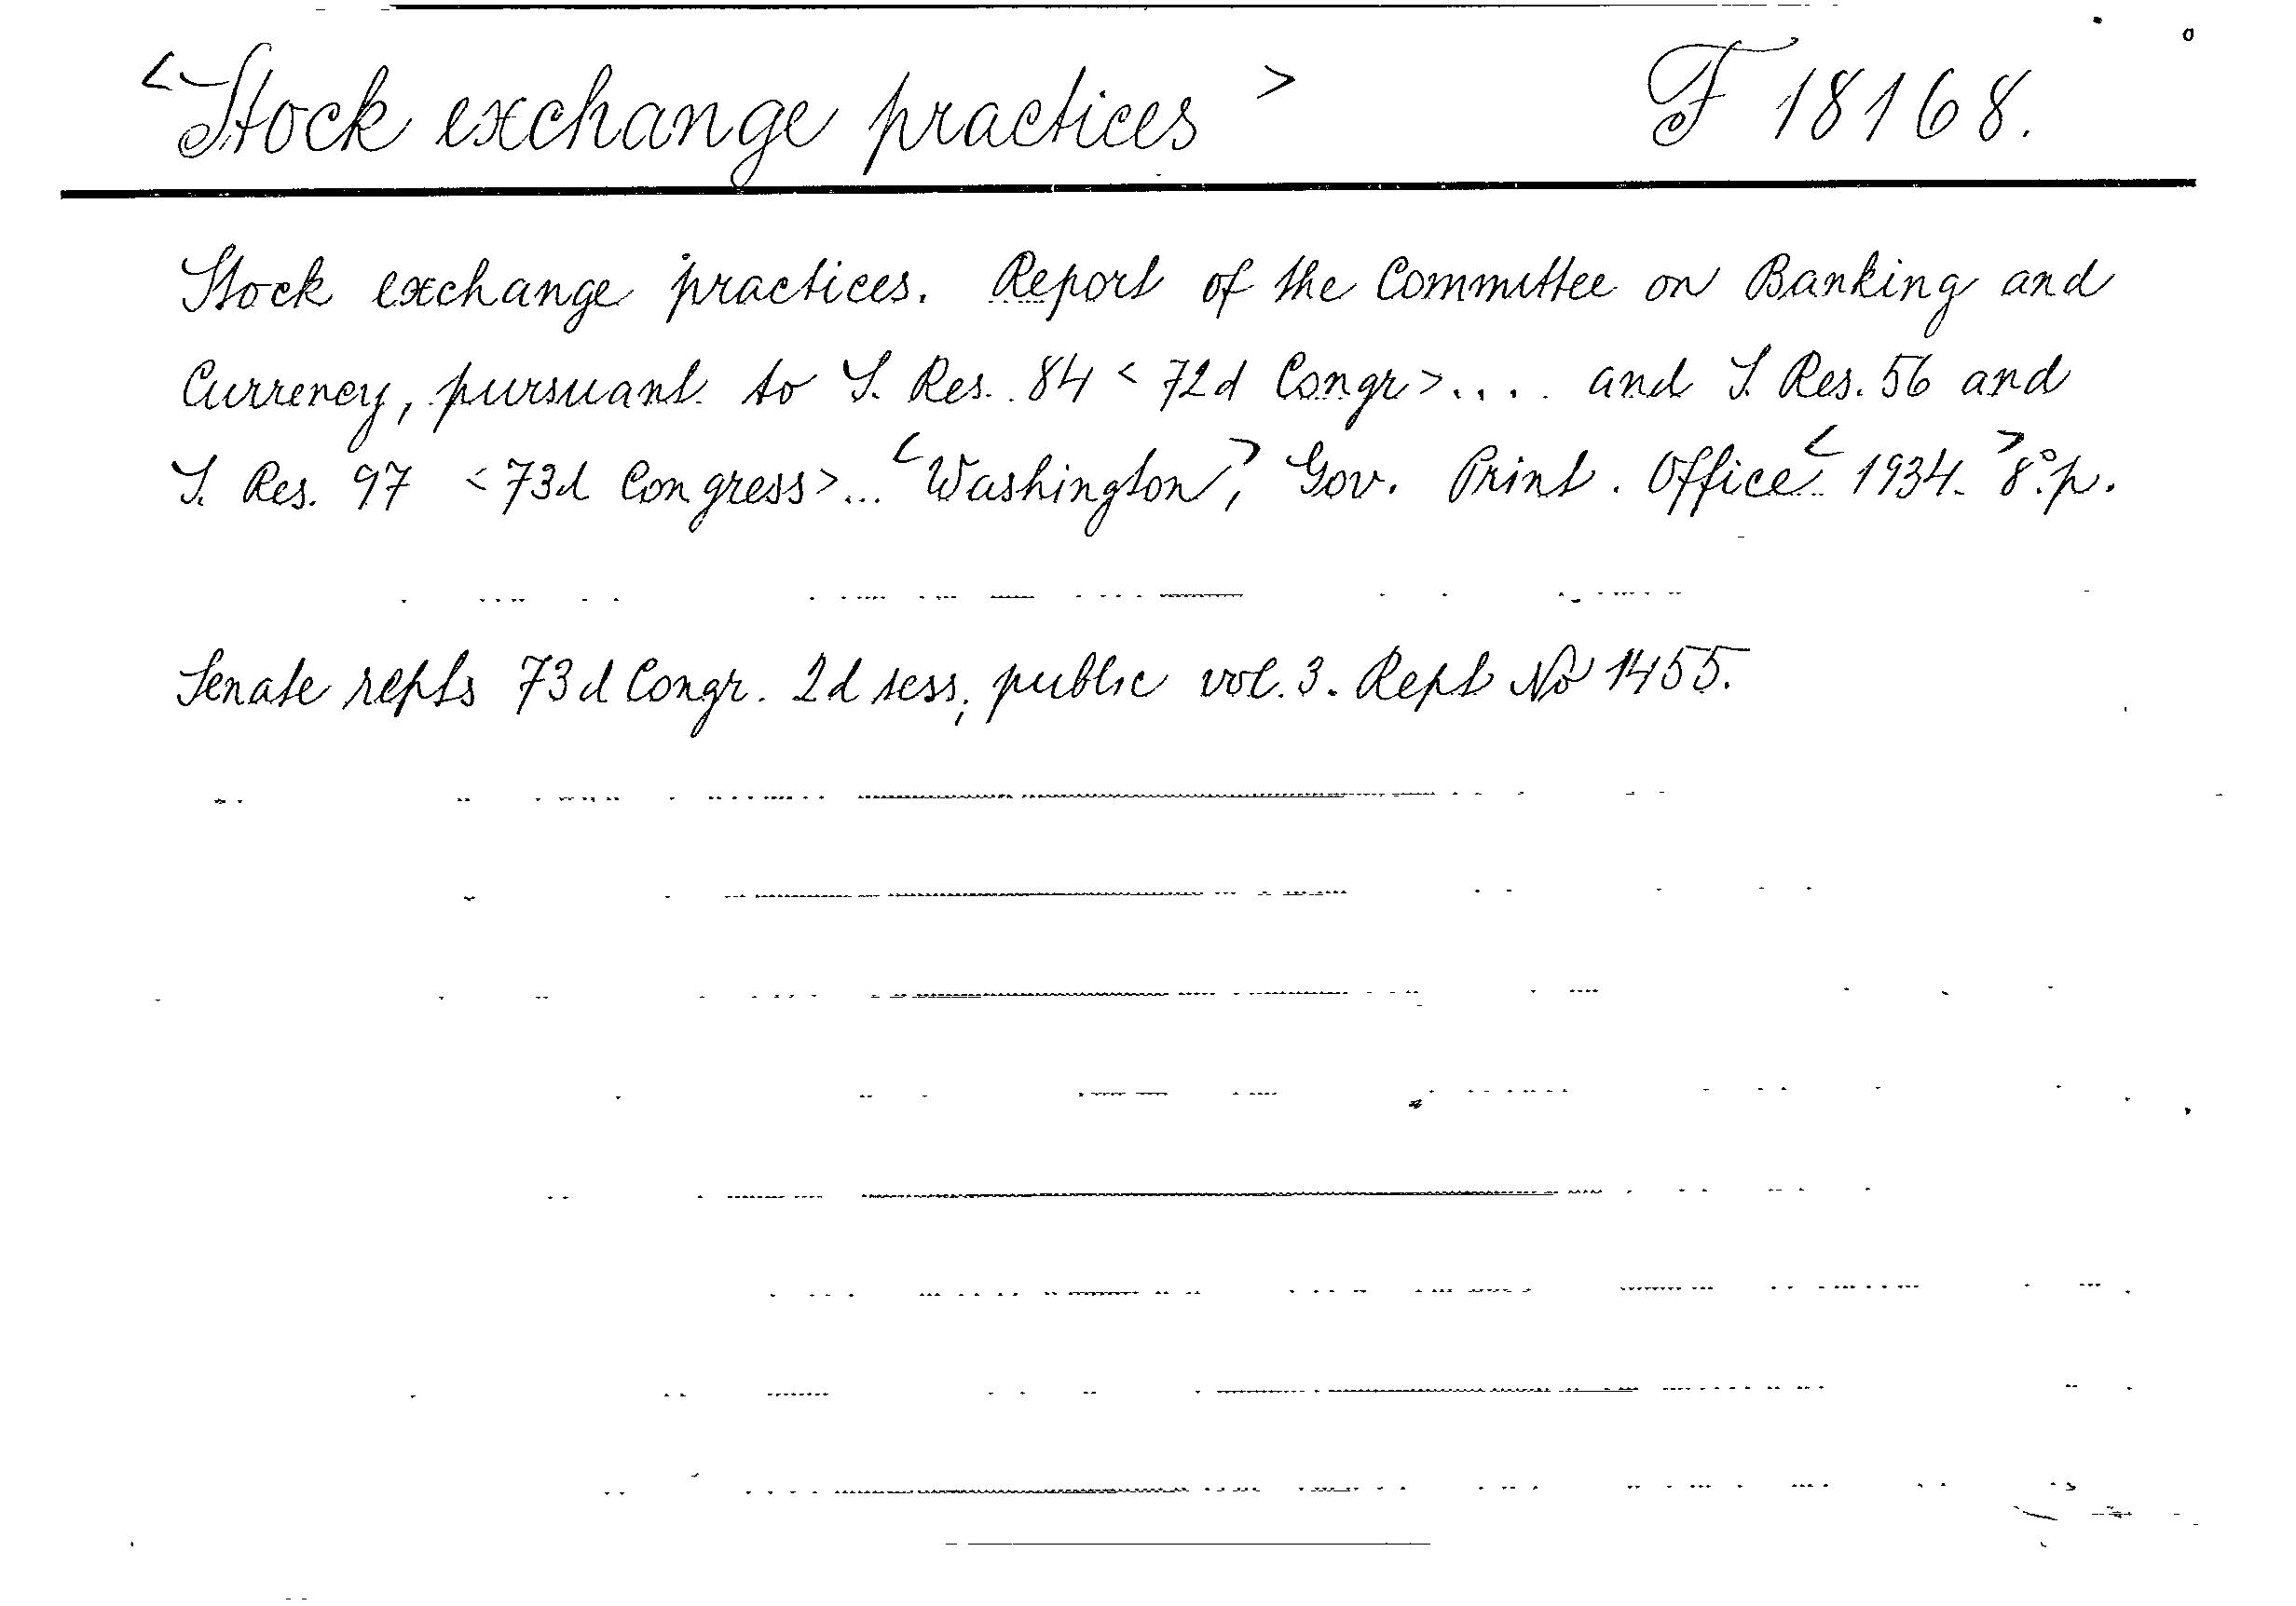 <Stock exchange practices> F 18168.
Stock exchange practices. Report of the Committee on Banking and
Currency, pursuant to S. Res. 84 < 72d Congr>.... and S. Res. 56 and
S. Res. 97 <73d Congress>... <Washington,> Gov. Print. Office < 1934. > 8°. p.
Senate repts 73d Congr. 2d sess; public vol. 3. Rept No 1455.